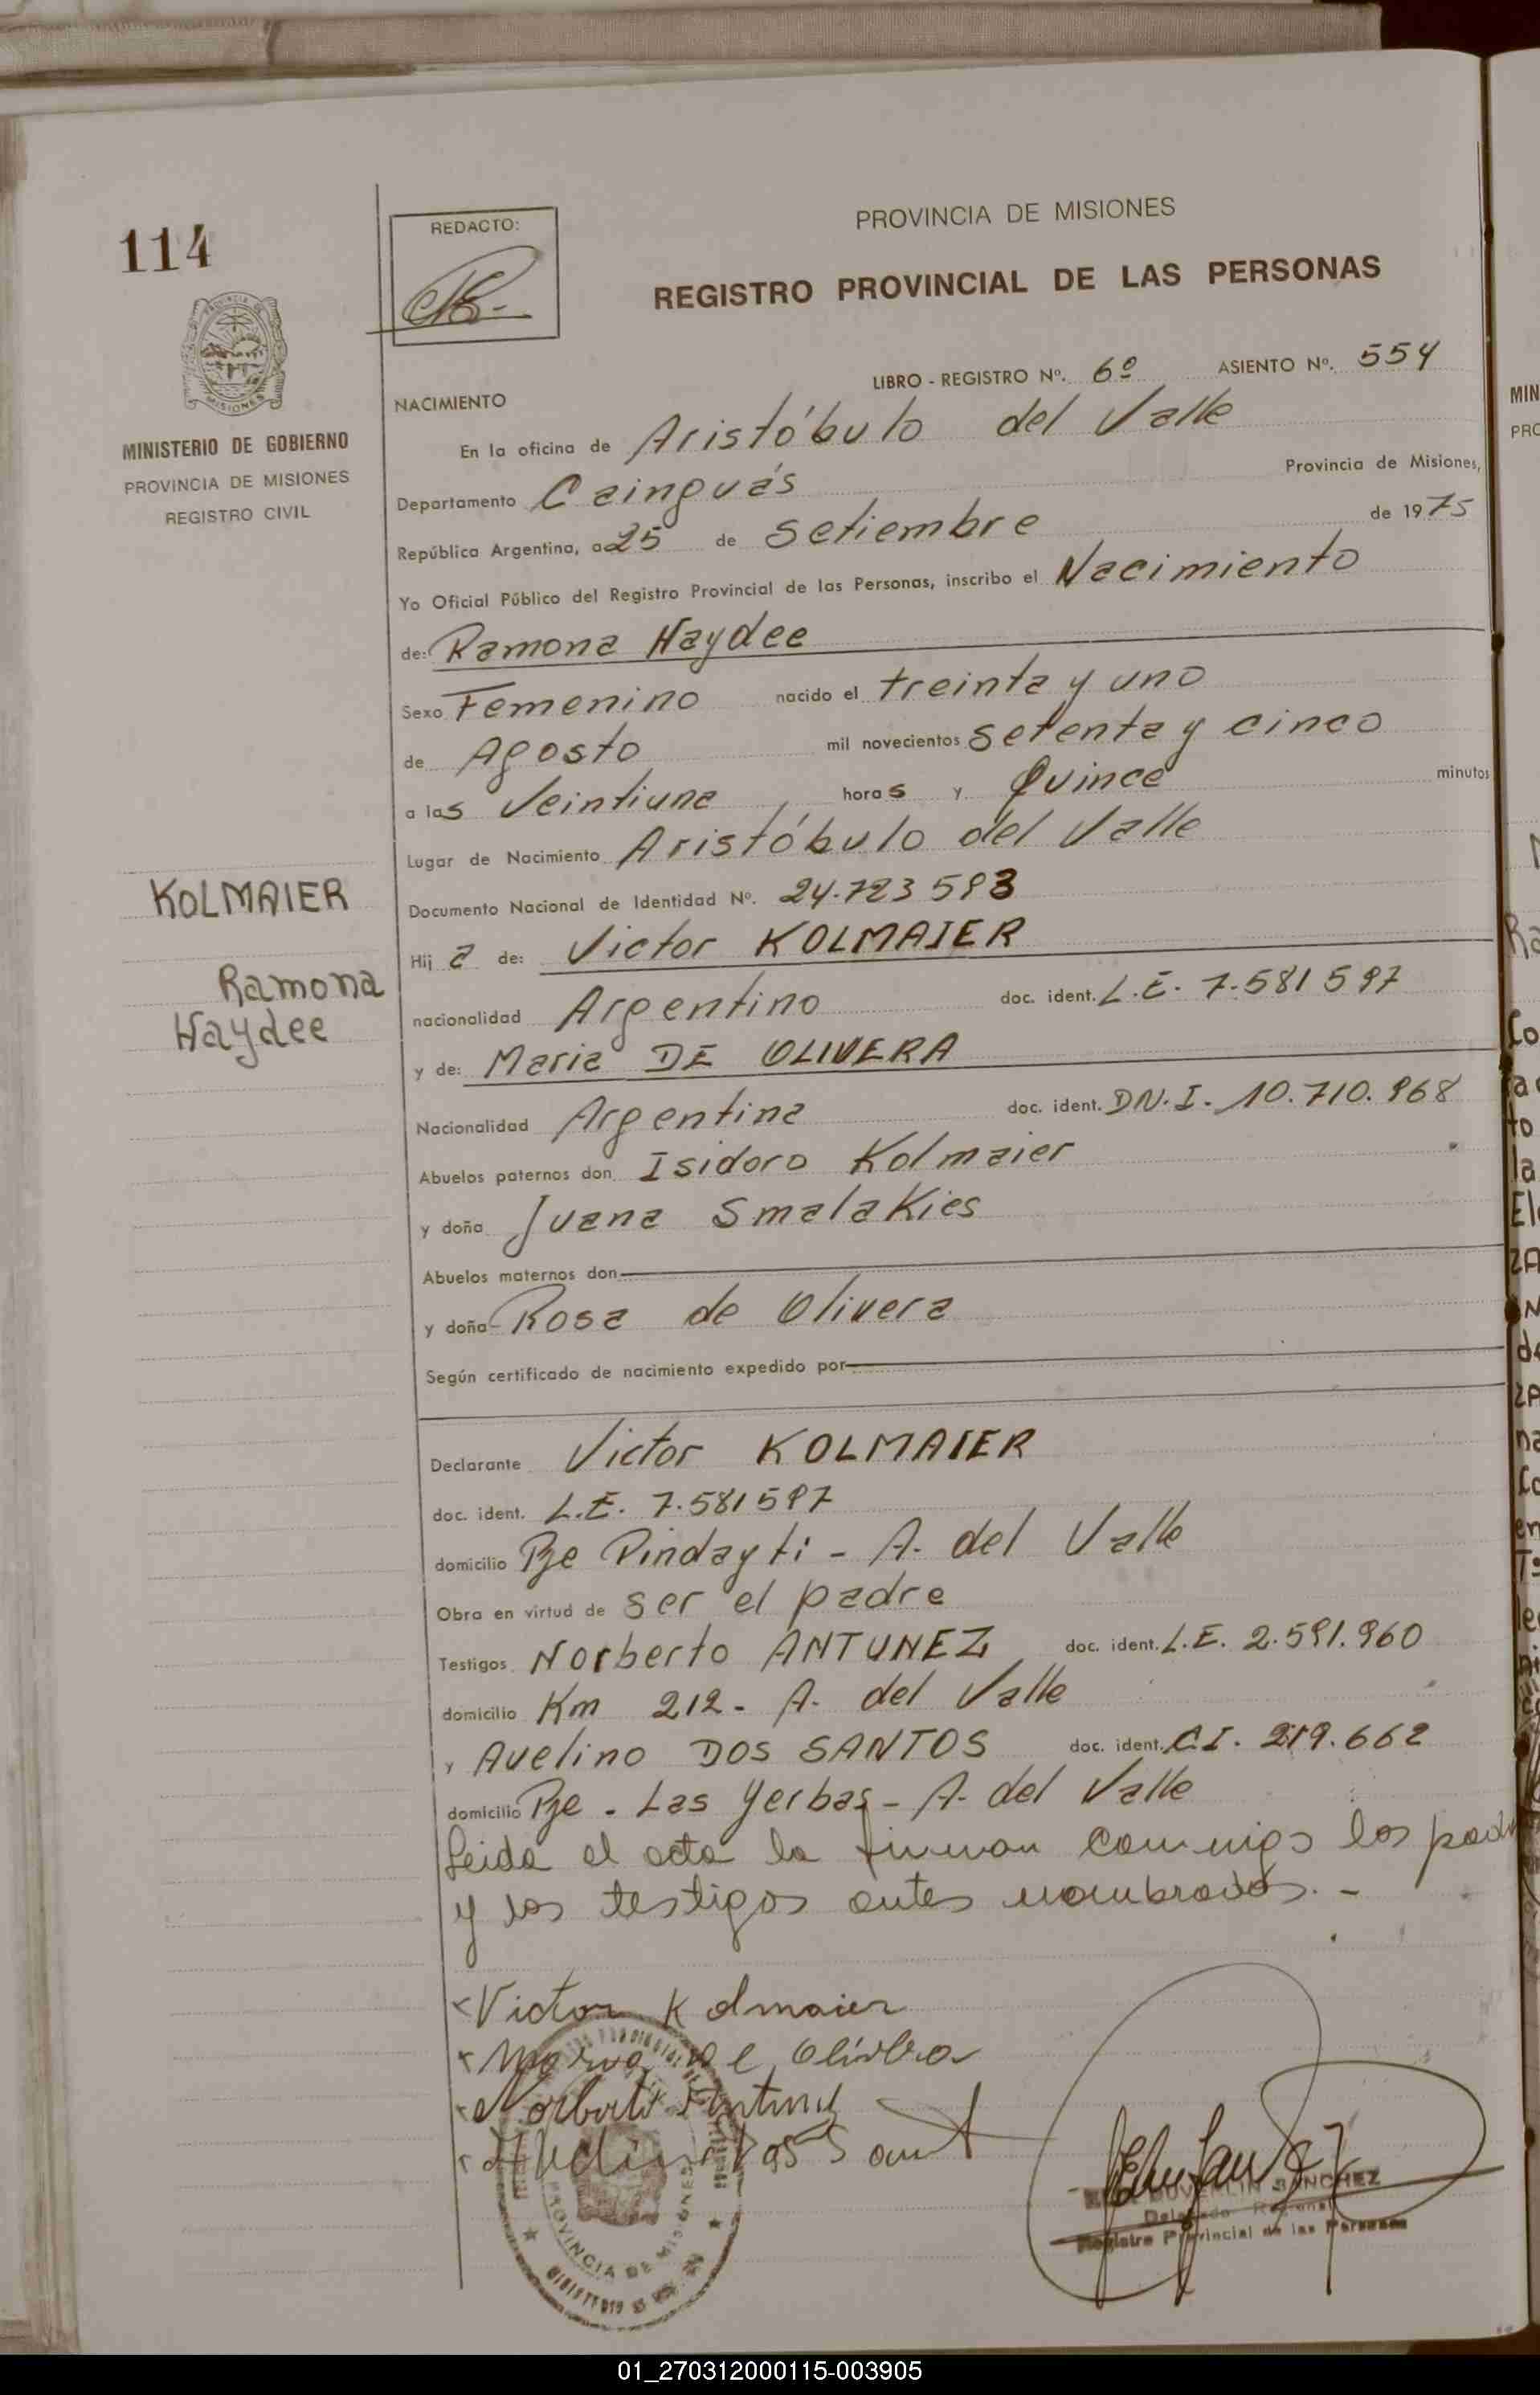 114
REDACTO:
PROVINCIA DE MISIONES
REGISTRO PROVINCIAL DE LAS PERSONAS
MINISTERIO DE GOBIERNO
PROVINCIA DE MISIONES
REGISTRO CIVIL
LIBRO - REGISTRO Nº. 6º ASIENTO Nº. 554
NACIMIENTO
En la oficina de Aristóbulo del Valle
Departamento Cainguás Provincia de Misiones,
República Argentina, a 25 de Setiembre de 1975
Yo Oficial Público del Registro Provincial de las Personas, inscribo el Nacimiento
de: Ramona Haydee
Sexo Femenino nacido el treinta y uno
de Agosto mil novecientos setenta y cinco
a las Veintiuna horas y Quince minutos
Lugar de Nacimiento Aristóbulo del Valle
Documento Nacional de Identidad Nº. 24.723 593
KOLMAIER
Ramona
Haydee
Hija de: Victor KOLMAIER
nacionalidad Argentino doc. ident. L.E. 7.581 597
y de: Maria DE OLIVERA
Nacionalidad Argentina doc. ident. DN.I. 10.710.968
Abuelos paternos don Isidoro Kolmaier
y doña Juana Smalakies
Abuelos maternos don
y doña Rosa de Olivera
Según certificado de nacimiento expedido por
Declarante Victor KOLMAIER
doc. ident. L.E. 7.581 597
domicilio Pje Pindayti - A. del Valle
Obra en virtud de ser el padre
Testigos Norberto ANTUNEZ doc. ident. L.E. 2.591.960
domicilio Km 212 - A. del Valle
y Avelino DOS SANTOS doc. ident. C.I. 219.662
domicilio Pje. Las Yerbas - A. del Valle
Leida el acta la firman conmigo los
y los testigos antes nombrados. -
Victor Kolmaier
Maria de Olivera
Norberto Antunez
PROVINCIA DE MISIONES
SANCHEZ
Delegado Regional
Registro Provincial de las Personas
01_270312000115-003905